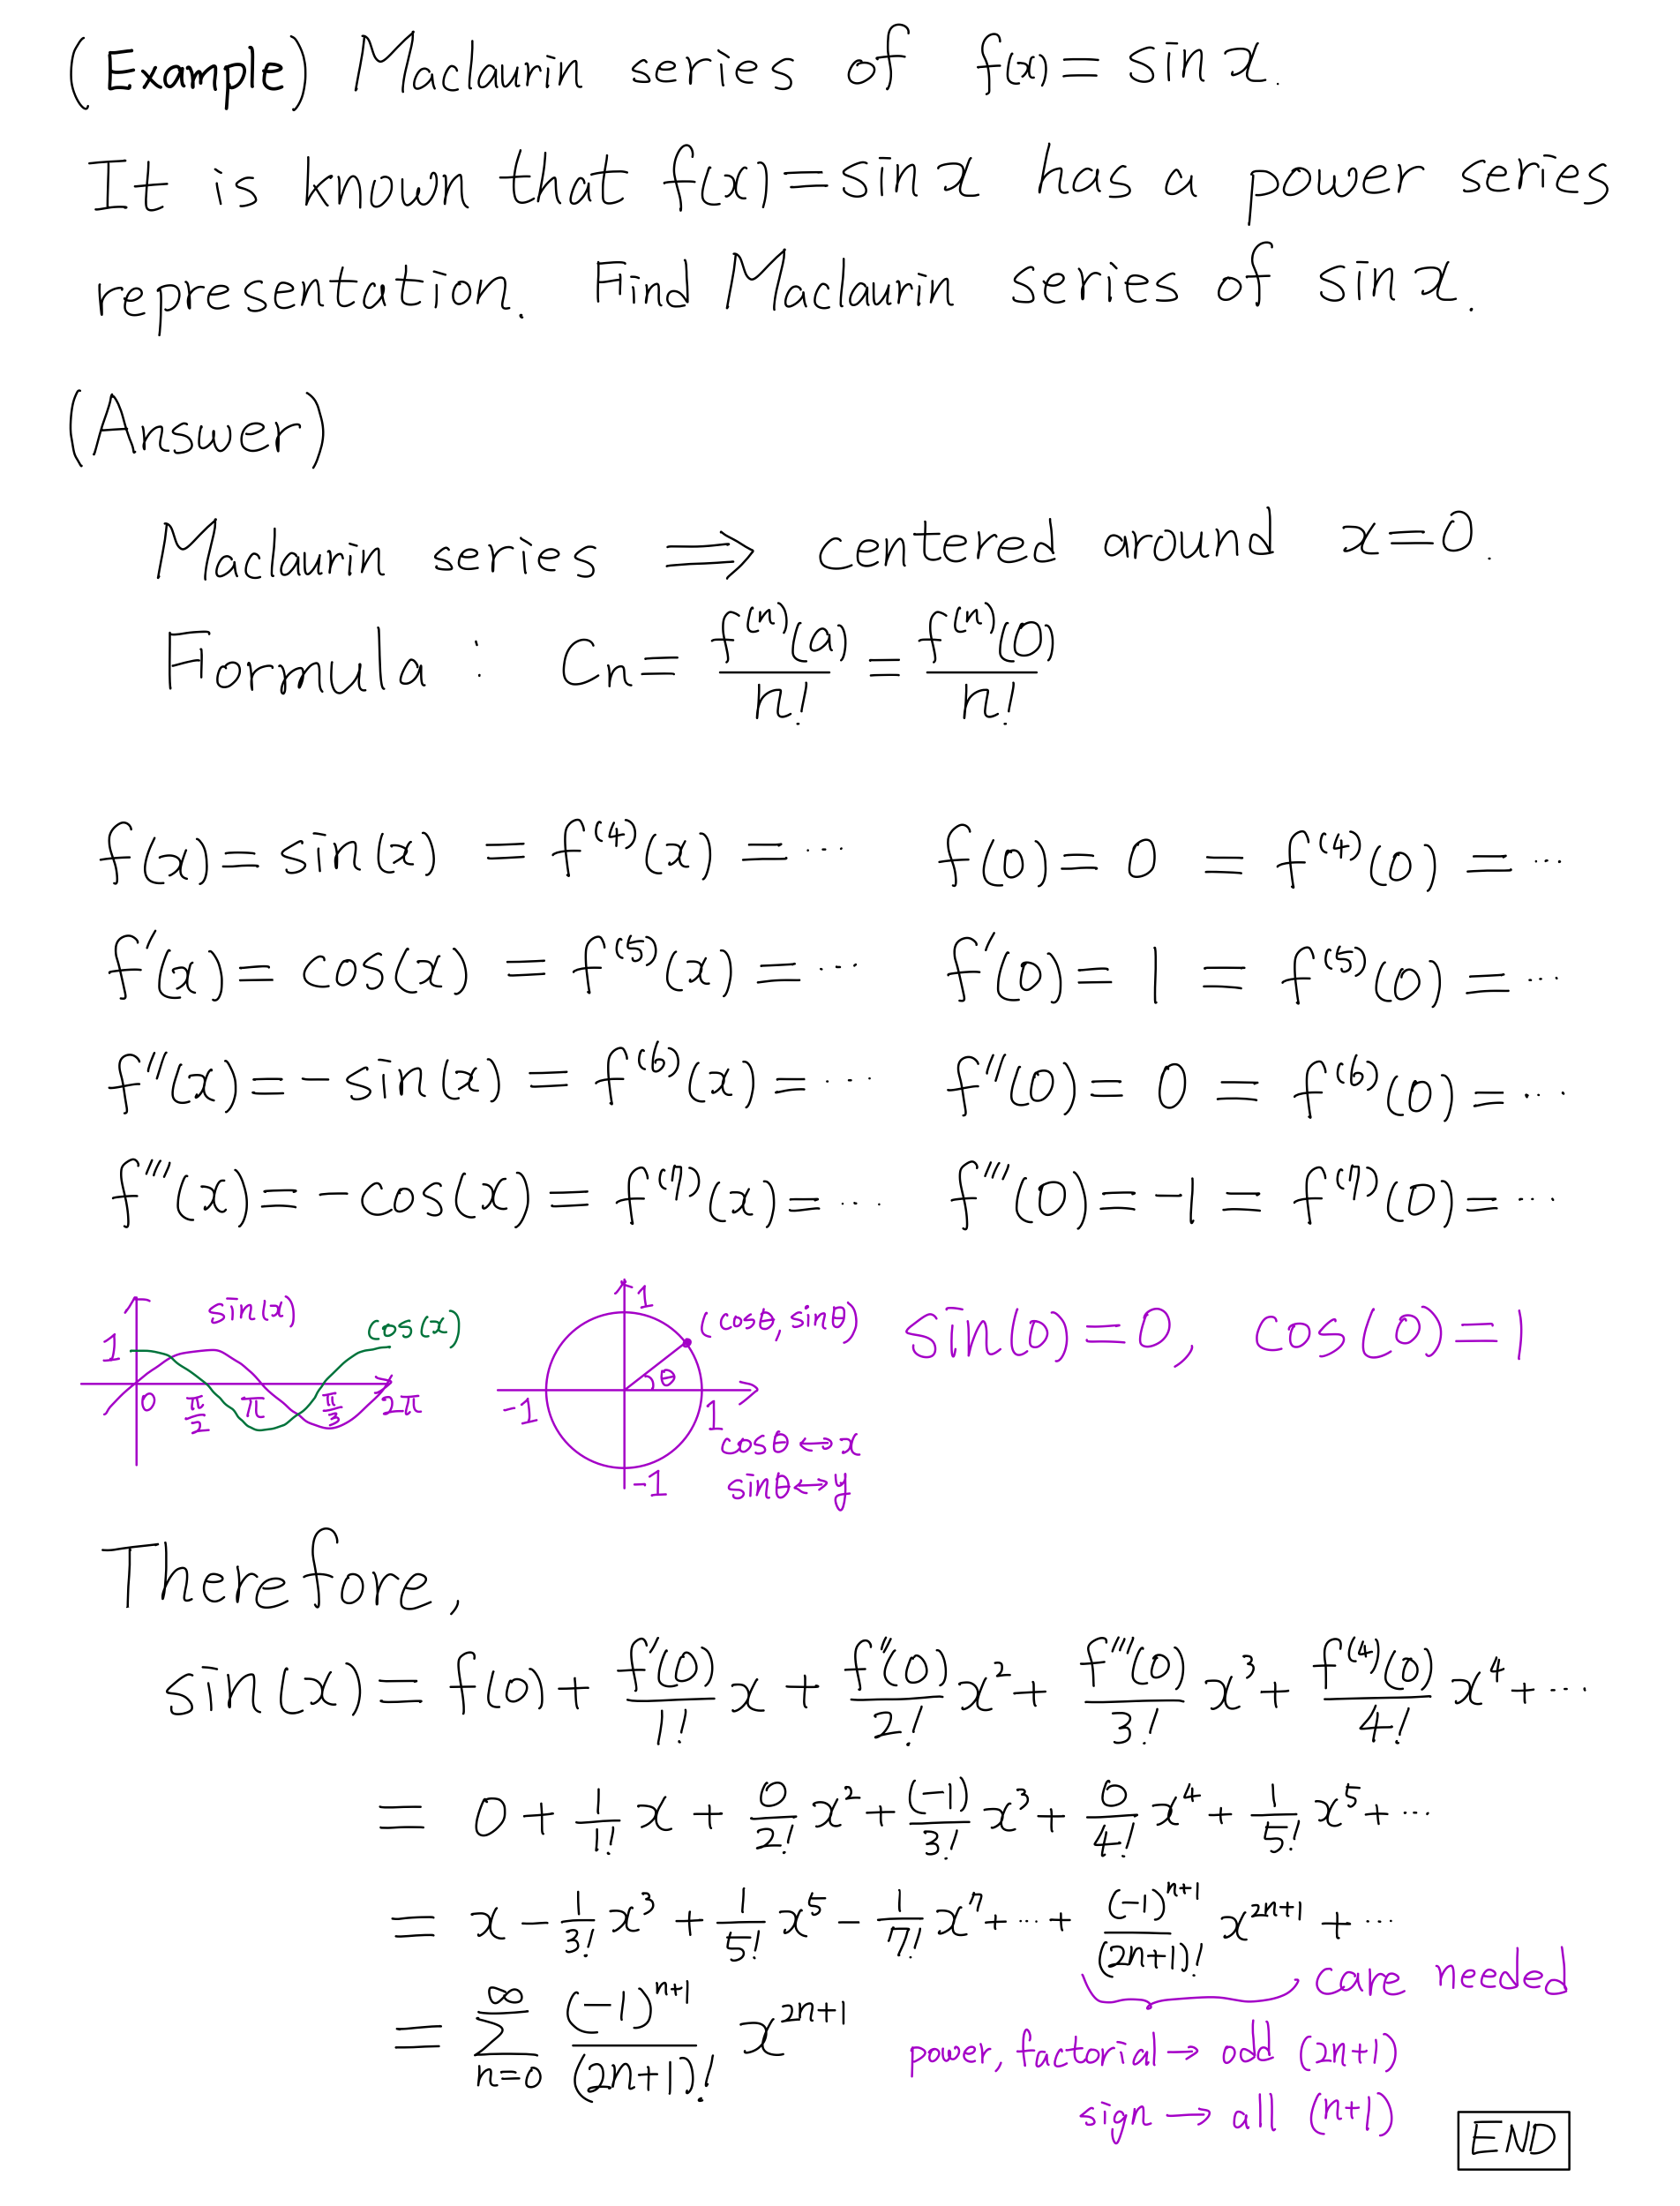 (Example) Maclaurin series of f(x) = sin x.
It is known that f(x) = sin x has a power series
representation. Find Maclaurin series of sin x.
(Answer)
Maclaurin series ⟹ centered around x=0.
Formula : Cn = f⁽ⁿ⁾(a)/n! = f⁽ⁿ⁾(0)/n!
f(x) = sin(x) = f⁽⁴⁾(x) = ··· f(0) = 0 = f⁽⁴⁾(0) = ···
f′(x) = cos(x) = f⁽⁵⁾(x) = ··· f′(0) = 1 = f⁽⁵⁾(0) = ···
f″(x) = -sin(x) = f⁽⁶⁾(x) = ··· f″(0) = 0 = f⁽⁶⁾(0) = ···
f‴(x) = -cos(x) = f⁽⁷⁾(x) = ··· f‴(0) = -1 = f⁽⁷⁾(0) = ···
sin(x)
cos(x)
1
0 π/2 π π/3 2π
1
(cosθ, sinθ)
θ
-1 1
-1
cosθ ↔ x
sinθ ↔ y
sin(0) = 0, cos(0) = 1
Therefore,
sin(x) = f(0) + f′(0)/1! x + f″(0)/2! x² + f‴(0)/3! x³ + f⁽⁴⁾(0)/4! x⁴ + ···
= 0 + 1/1! x + 0/2! x² + (-1)/3! x³ + 0/4! x⁴ + 1/5! x⁵ + ···
= x - 1/3! x³ + 1/5! x⁵ - 1/7! x⁷ + ··· + (-1)ⁿ⁺¹/(2n+1)! x²ⁿ⁺¹ + ···
care needed
= ∞ Σ n=0 (-1)ⁿ⁺¹/(2n+1)! x²ⁿ⁺¹
power, factorial → odd (2n+1)
sign → all (n+1)
END